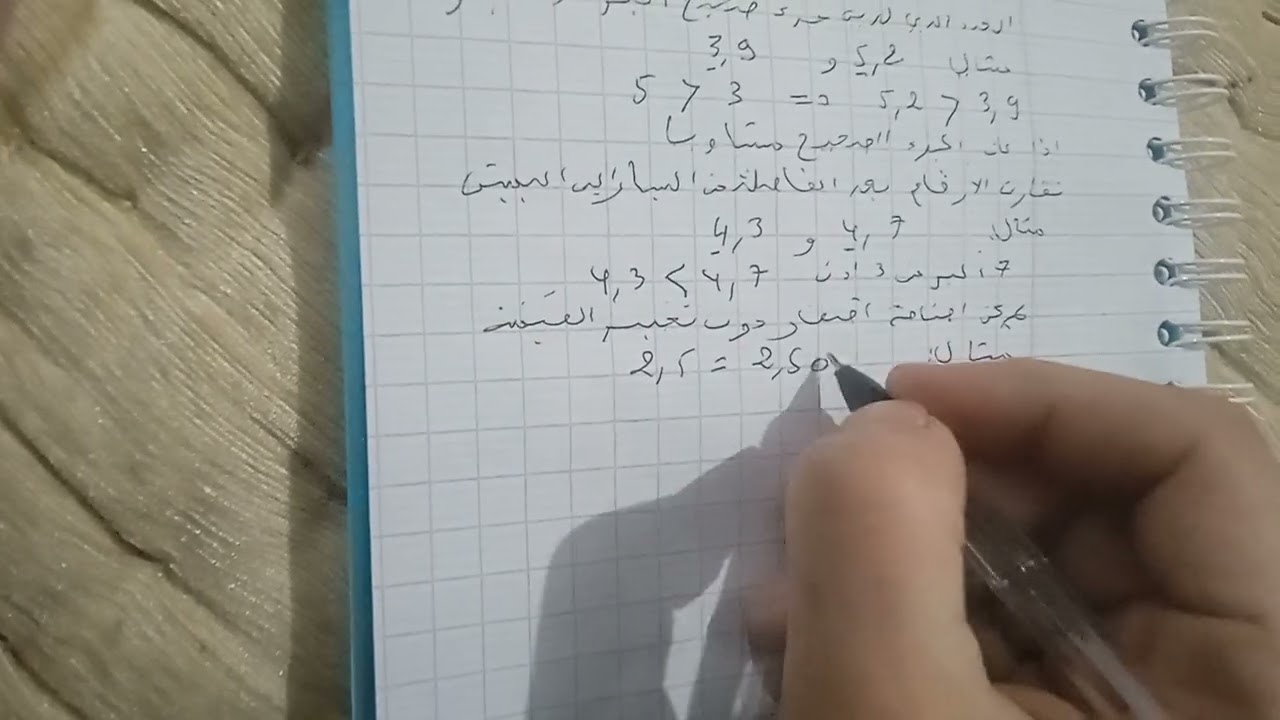 العدد الذي لديه جزء صحيح
مثال 5,2 و 3,9
5 > 3 => 5,2 > 3,9
اذا كان الجزء الصحيح متساويا
نقارن الارقام بعد الفاصلة من اليسار الى اليمين
مثال: 4,7 و 4,3
7 اكبر من 3 اذن 4,3 < 4,7
يمكن اضافة اصفار دون تغيير القيمة
مثال: 2,5 = 2,50